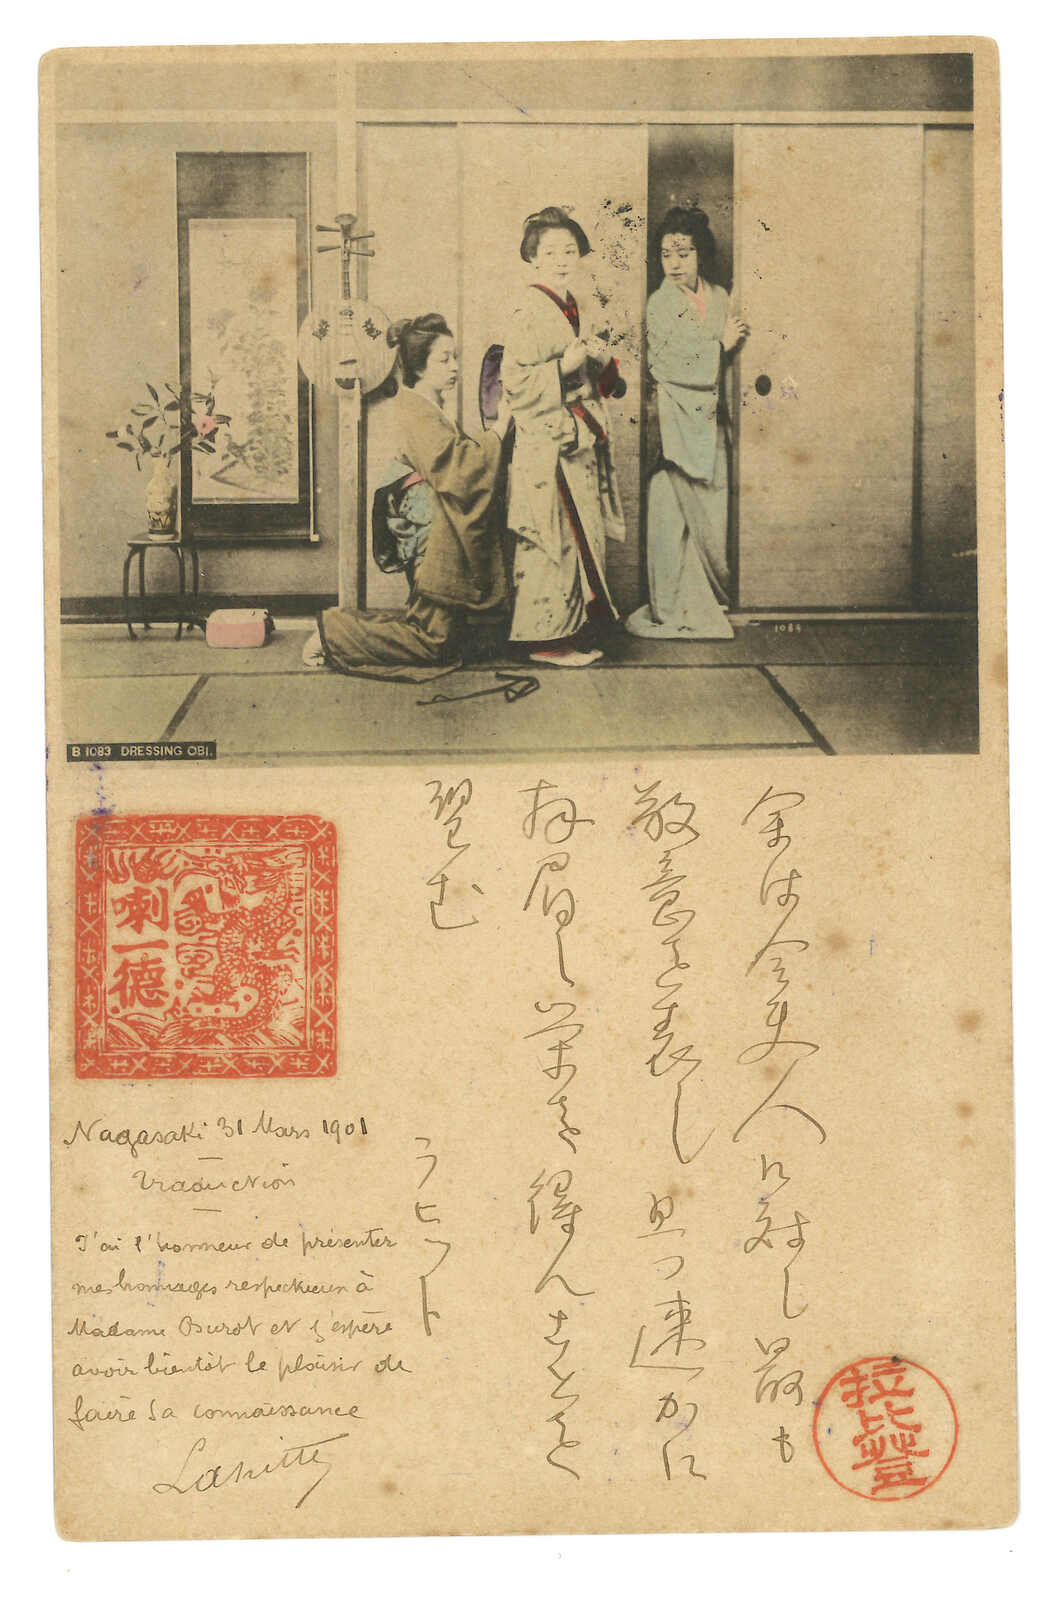 1084
B 1083 DRESSING OBI.
余は令夫人に対し最も
敬意を表し且つ速かに
拝眉し栄を得んことを
望む
ラヒット
喇一德
Nagasaki 31 Mars 1901
Traduction
J'ai l'honneur de présenter
mes hommages respectueux à
Madame Burot et j'espère
avoir bientôt le plaisir de
faire sa connaissance
Lahitte